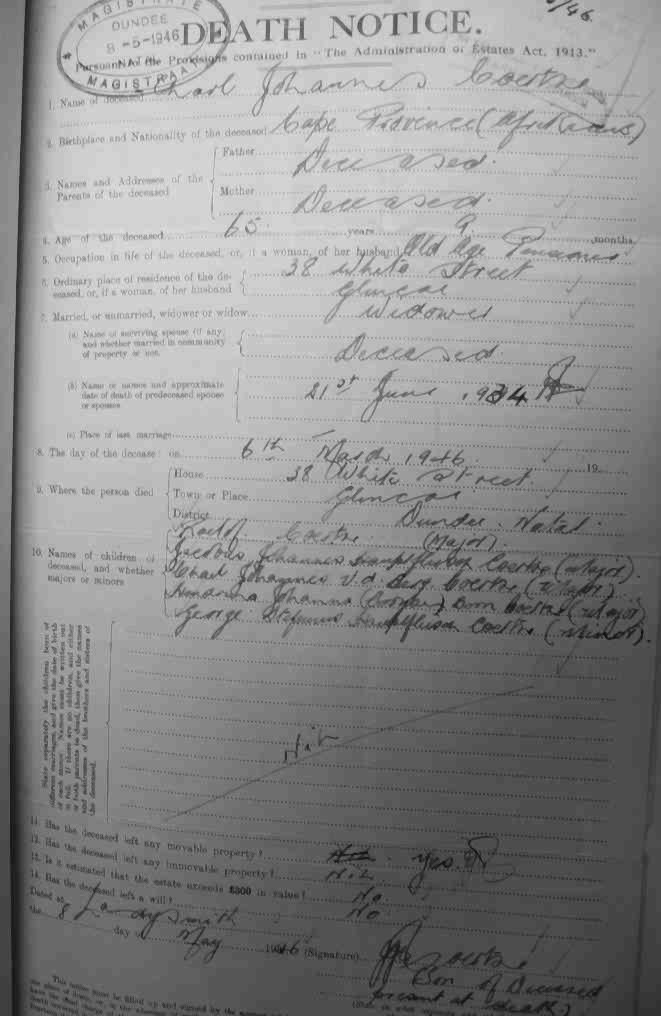 MAGISTRATE
DUNDEE
8-5-1946
NATAL
MAGISTRAAT
/46.
DEATH NOTICE.
Pursuant to the Provisions contained in "The Administration of Estates Act, 1913."
1. Name of deceased Charl Johannes Coertze
2. Birthplace and Nationality of the deceased Cape Province (Afrikaans)
3. Names and Addresses of the Parents of the deceased
Father Deceased.
Mother Deceased.
4. Age of the deceased 65 years 9 months.
5. Occupation in life of the deceased, or, if a woman, of her husband Old Age Pensioner
6. Ordinary place of residence of the deceased, or, if a woman, of her husband 38 White Street
Glencoe
7. Married, or unmarried, widower or widow Widower
(a) Name of surviving spouse (if any) and whether married in community of property or not. Deceased
(b) Name or names and approximate date of death of predeceased spouse or spouses 21st June, 1934
(c) Place of last marriage —
8. The day of the decease: on 6th March 1946. 19
9. Where the person died
House 38 White Street.
Town or Place Glencoe
District Dundee. Natal.
10. Names of children of deceased, and whether majors or minors
Roelof Coertze (Major).
Johannes Coertze (Major).
Charl Johannes v.d. Berg Coertze (Major)
Johanna Born Coertze (Major)
George Stefanus Coertze (Minor).
State separately the children born of different marriages, and give the date of birth of each minor. Names must be written out in full. If there are no children, and either or both parents be dead, then give the names and addresses of the brothers and sisters of the deceased.
Nil
11. Has the deceased left any movable property? Nil. Yes.
12. Has the deceased left any immovable property? Nil
13. Is it estimated that the estate exceeds £300 in value? No
14. Has the deceased left a will? No.
Dated at Ladysmith
the 8 day of May 1946 (Signature) Coertze
Son of Deceased
present at death)